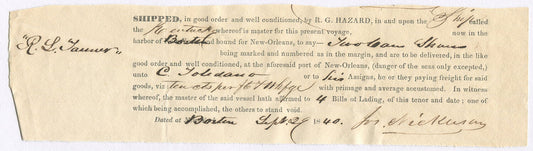 SHIPPED, in good order and well conditioned, by R. G. HAZARD, in and upon the Ship called
the Kentucky whereof is master for this present voyage, now in the
harbor of Boston and bound for New-Orleans, to say—Two Cases Shoes
"R. S. Tanner"
being marked and numbered as in the margin, and are to be delivered, in the like
good order and well conditioned, at the aforesaid port of New-Orleans, (danger of the seas only excepted,)
unto C Toledano or to his Assigns, he or they paying freight for said
goods, viz ten cts per ft with primage and average accustomed. In witness
whereof, the master of the said vessel hath affirmed to 4 Bills of Lading, of this tenor and date; one of
which being accomplished, the others to stand void.
Dated at Boston Sept 29 1840. Jos Nickerson